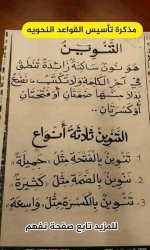 مذكرة تأسيس القواعد النحويه
التنوين
هو نون ساكنة زائدة تنطق
في آخر الكلمة ولا تكتب، نضع
بدلا منها ضمتان أو فتحتان
أو كسرتان..
التنوين ثلاثة أنواع
1. تنوين بالفتحة مثل، جميلةً
2. تنوين بالضمة مثل، كثيرةٌ
3. تنوين بالكسرة مثل، واسعةٍ
للمزيد تابع صفحة نفهم